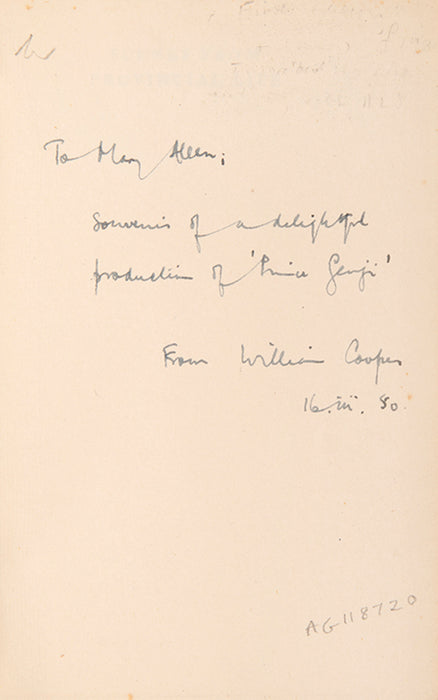 To Mary Allen;
Souvenir of a delightful
production of 'Prince Genji'
From William Cooper
16.iii.50
AG118720